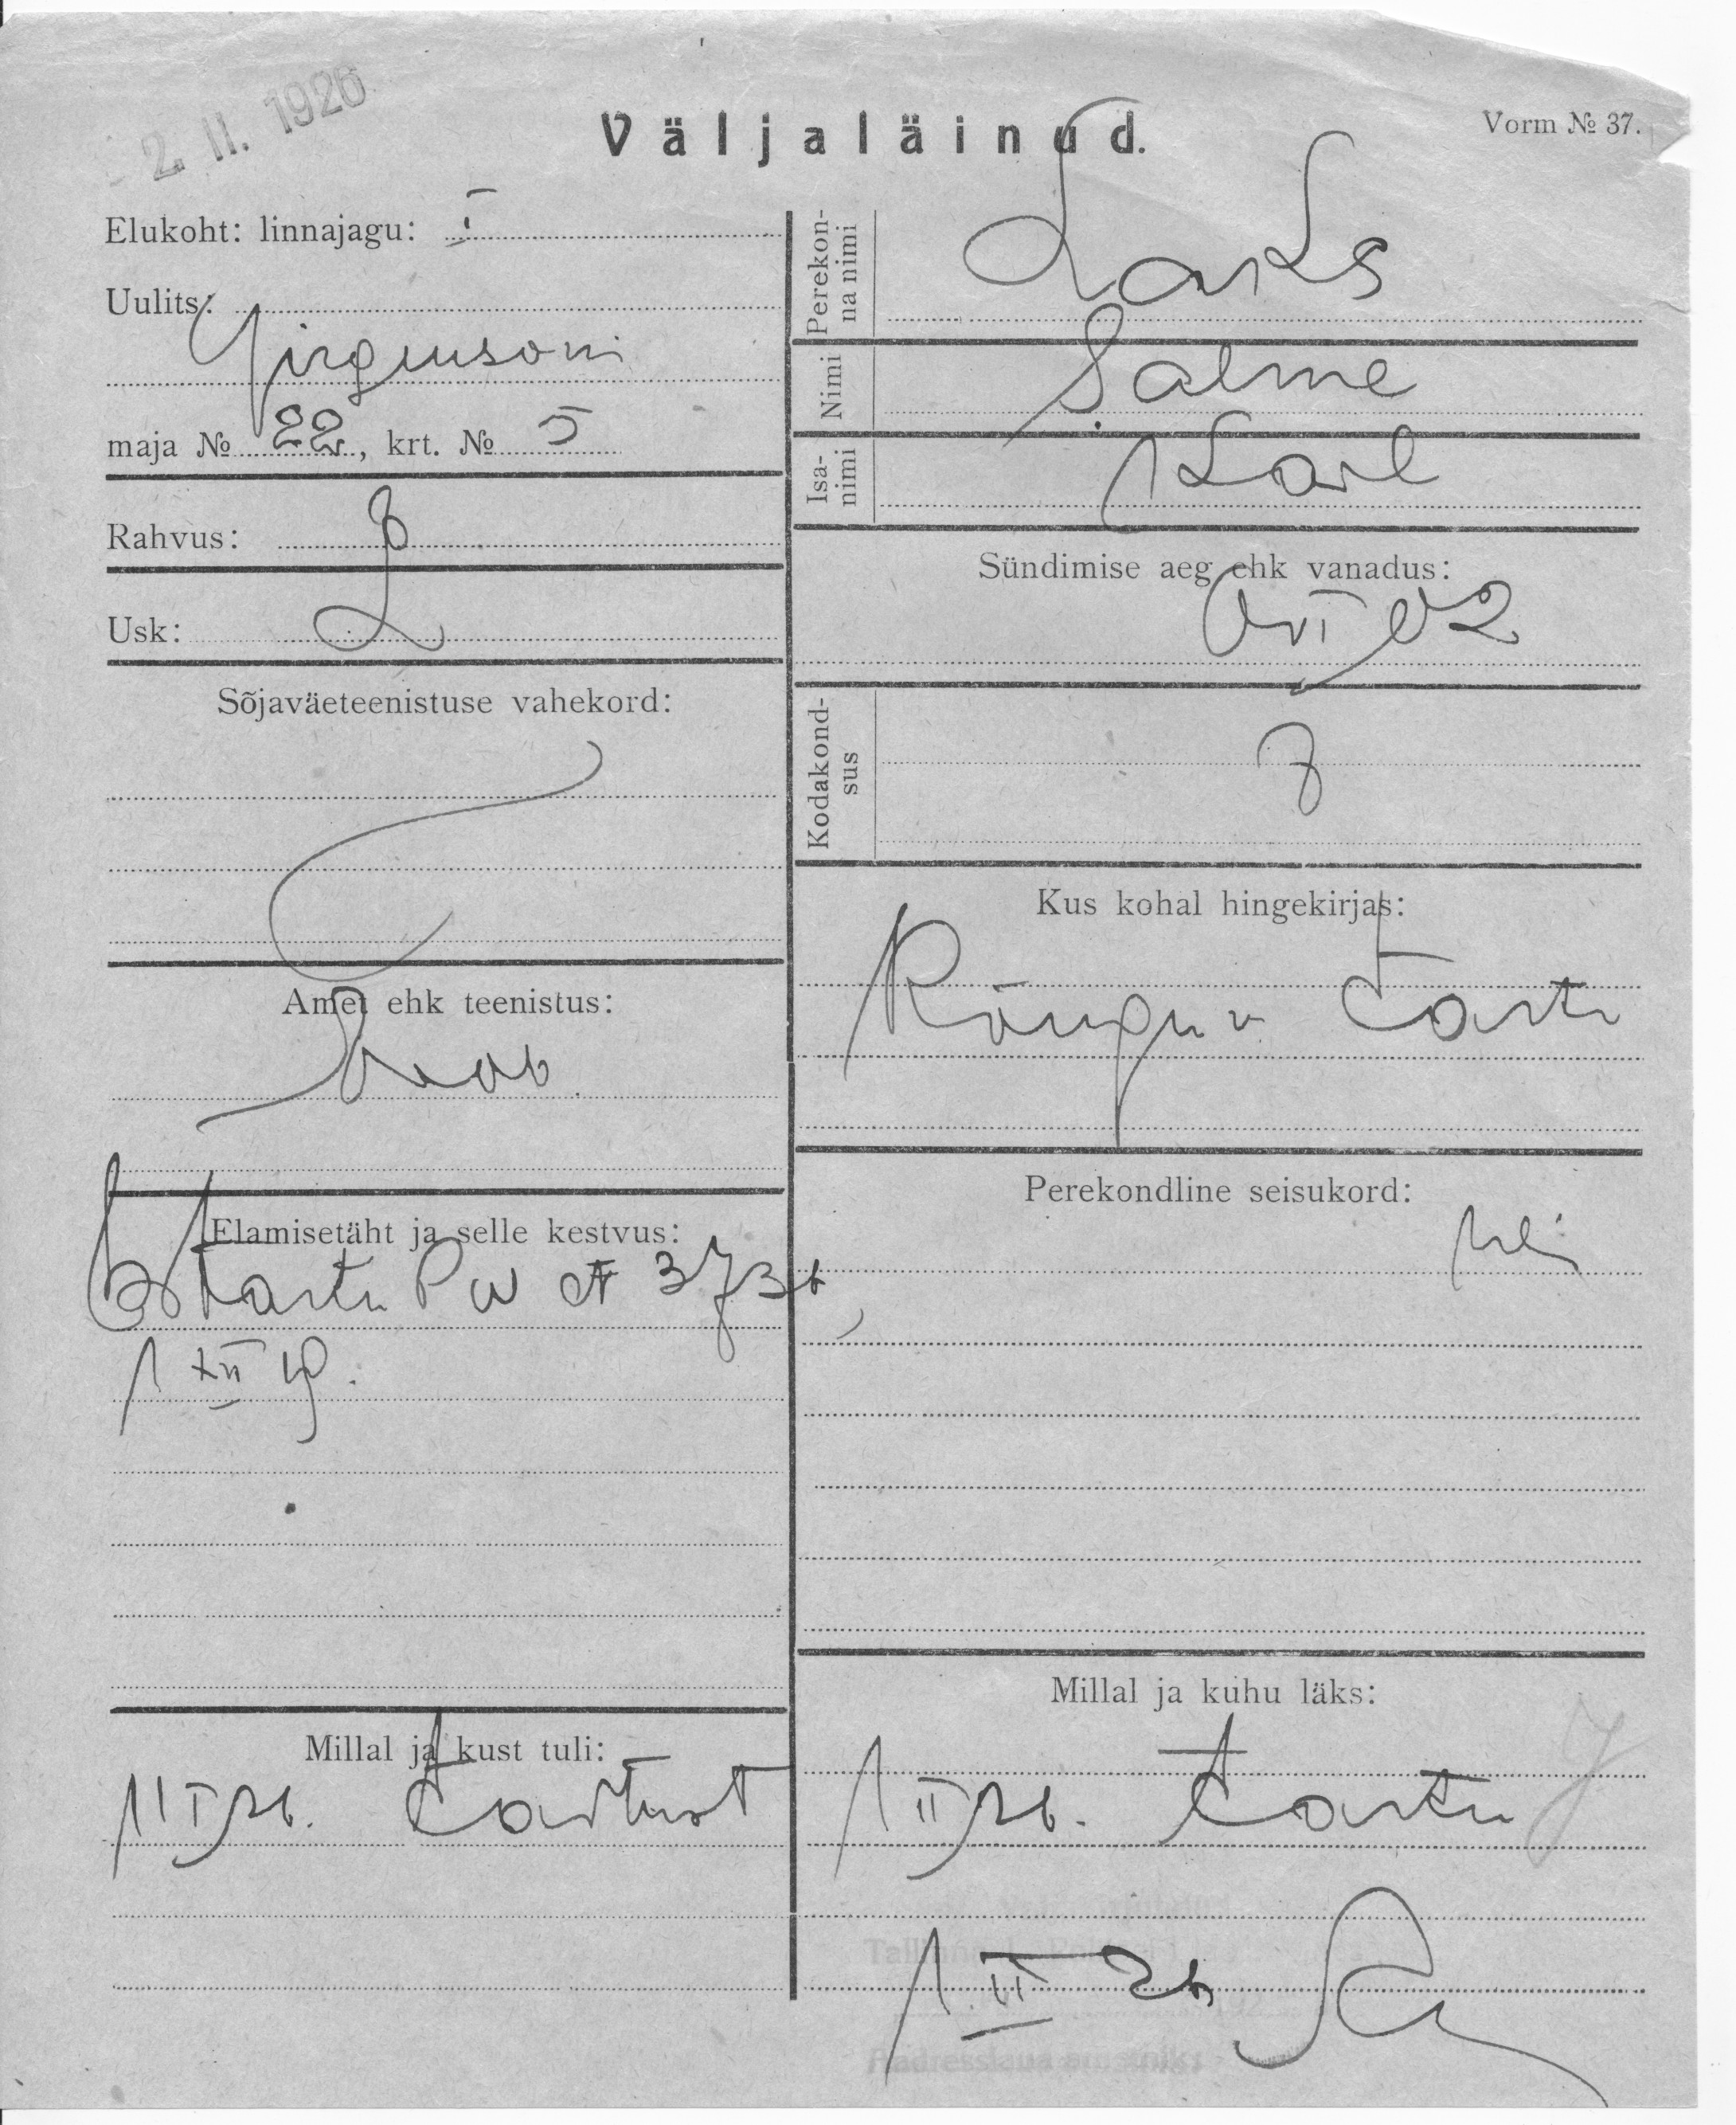 2. II. 1926
Väljaläinud.
Vorm № 37.
Elukoht: linnajagu: I
Uulits:
Girgensoni
maja № 22, krt. № 5
Rahvus: E
Usk: L
Sõjaväeteenistuse vahekord:
Amet ehk teenistus:
Elamisetäht ja selle kestvus:
Tartu
1 XII 19.
Millal ja kust tuli:
11 I 26. Tartust
Perekonna nimi Laks
Nimi Salme
Isanimi Karl
Sündimise aeg ehk vanadus:
VI 02
Kodakondsus
Kus kohal hingekirjas:
Rõngu v. Tartu
Perekondline seisukord:
Millal ja kuhu läks:
1 II 26. Tartu
1 II 26